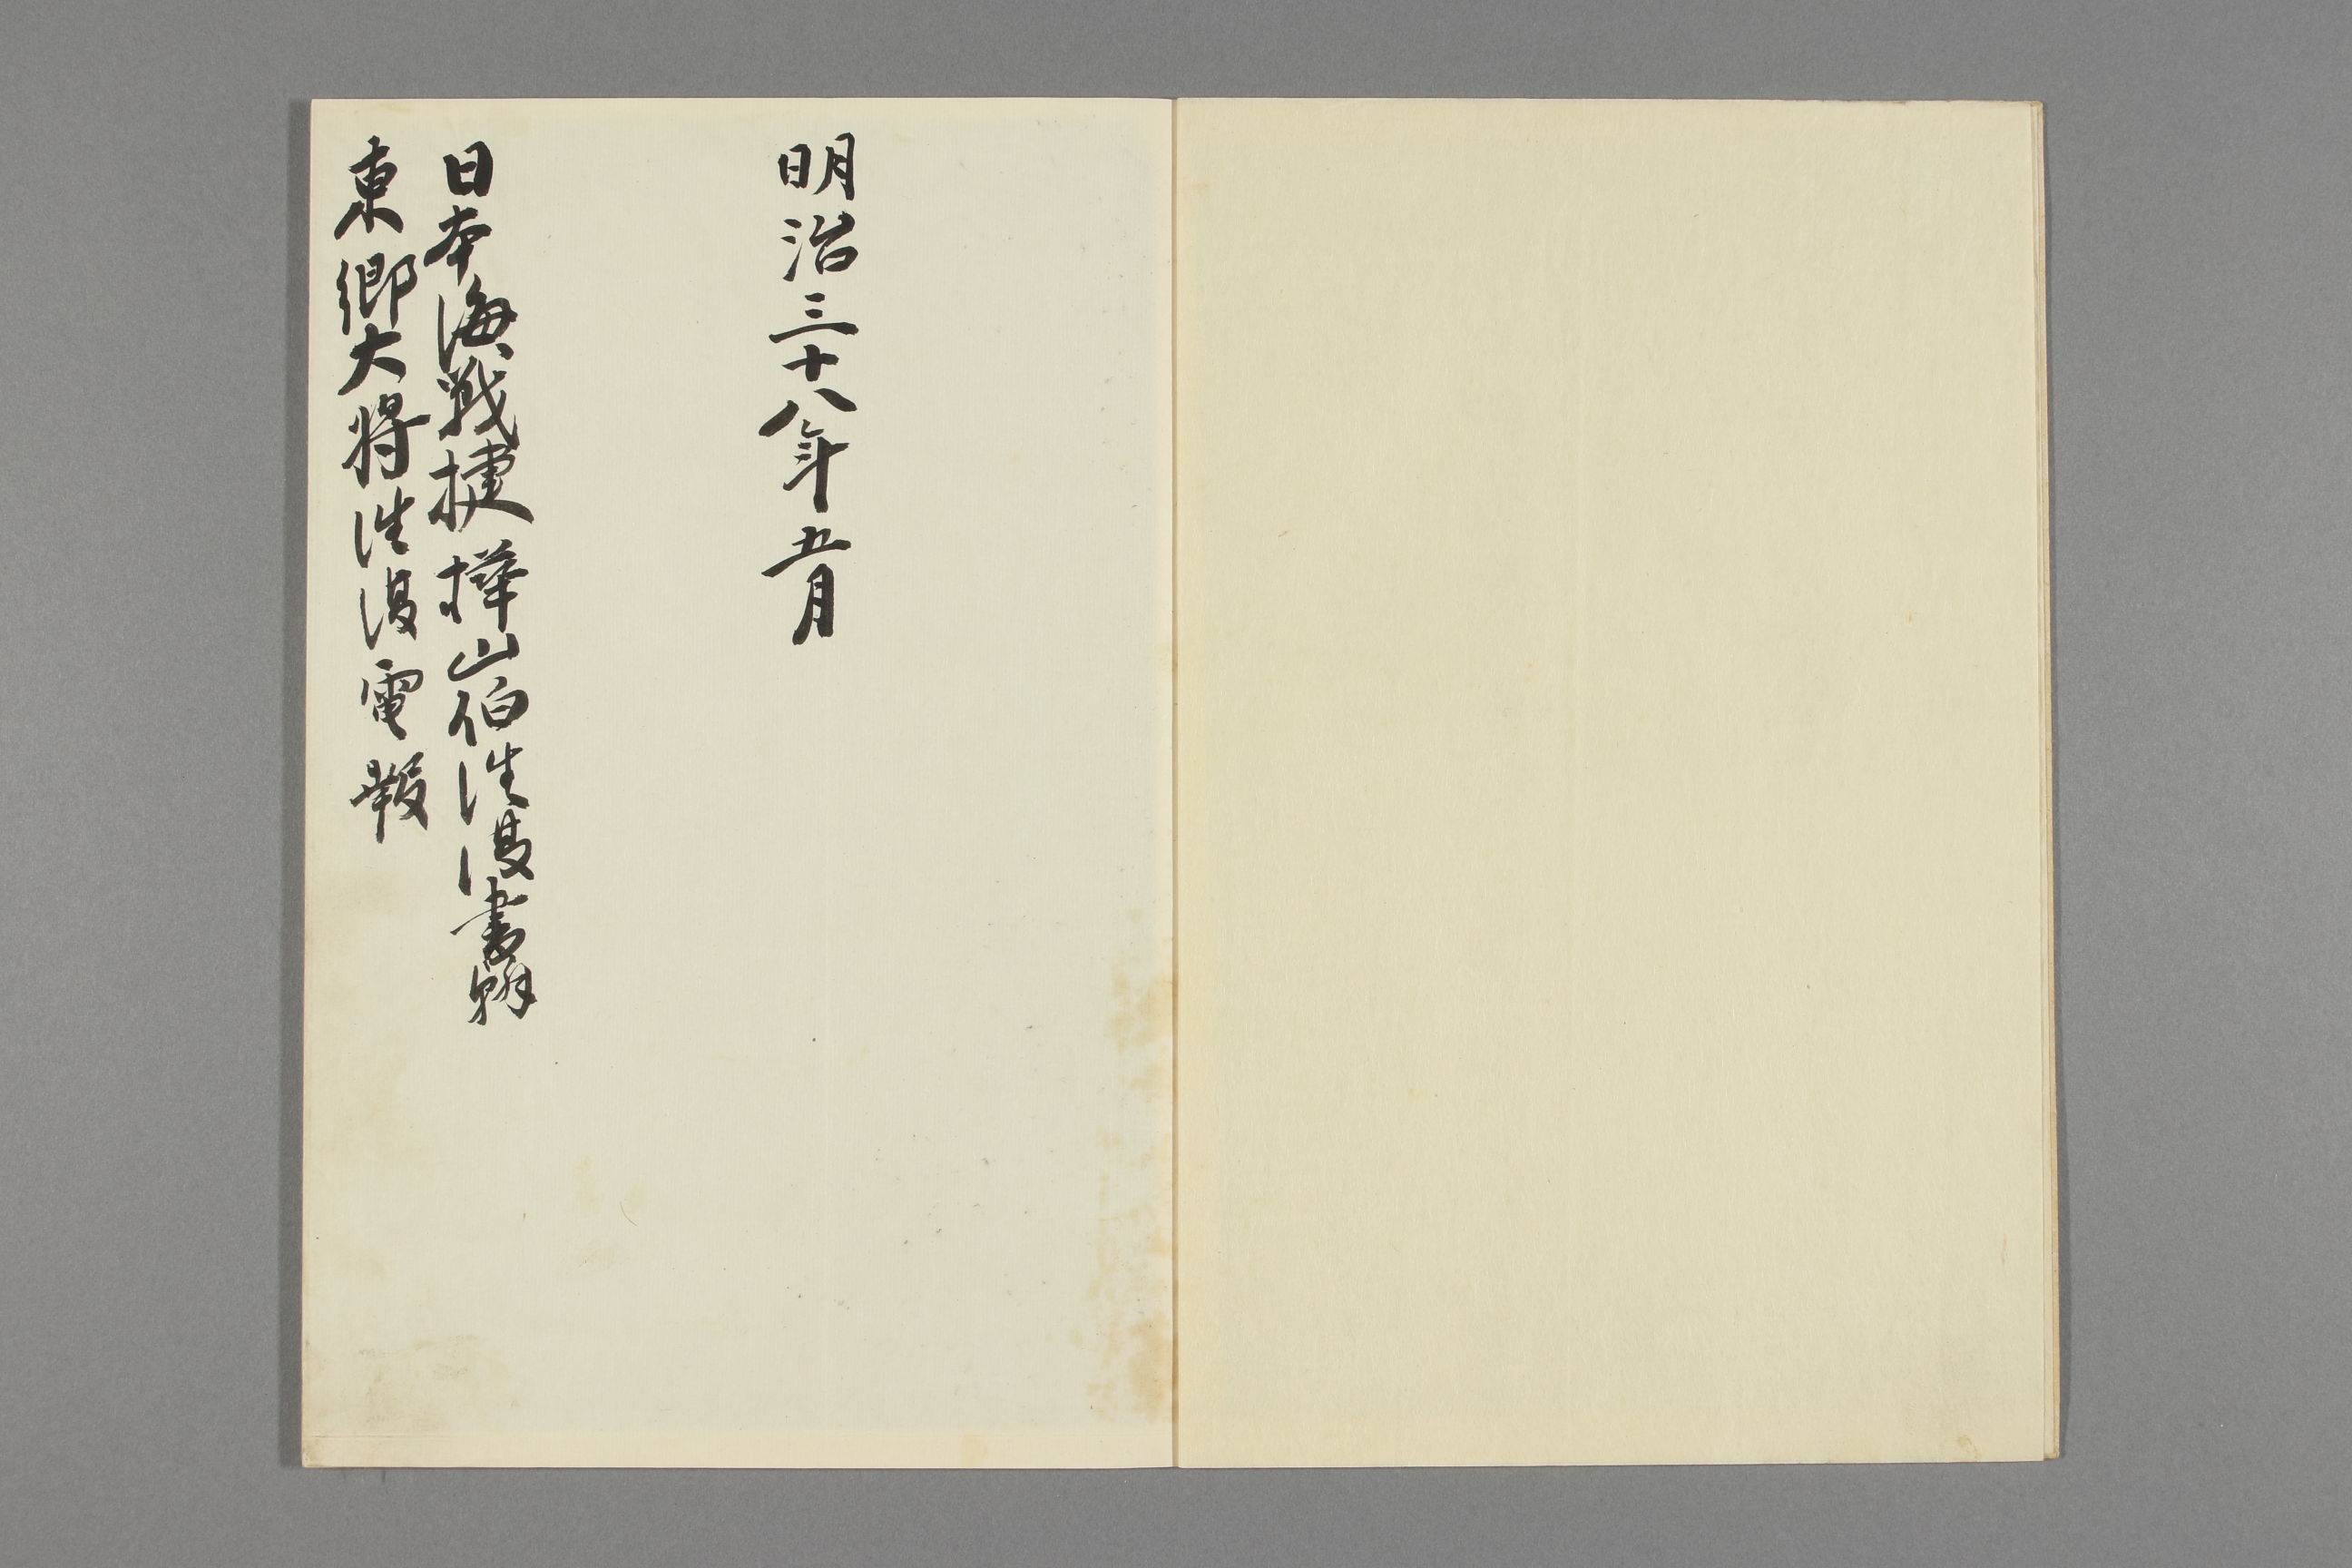 明治三十八年五月
日本海戦捷樺山伯徃復書翰
東郷大将徃復電報